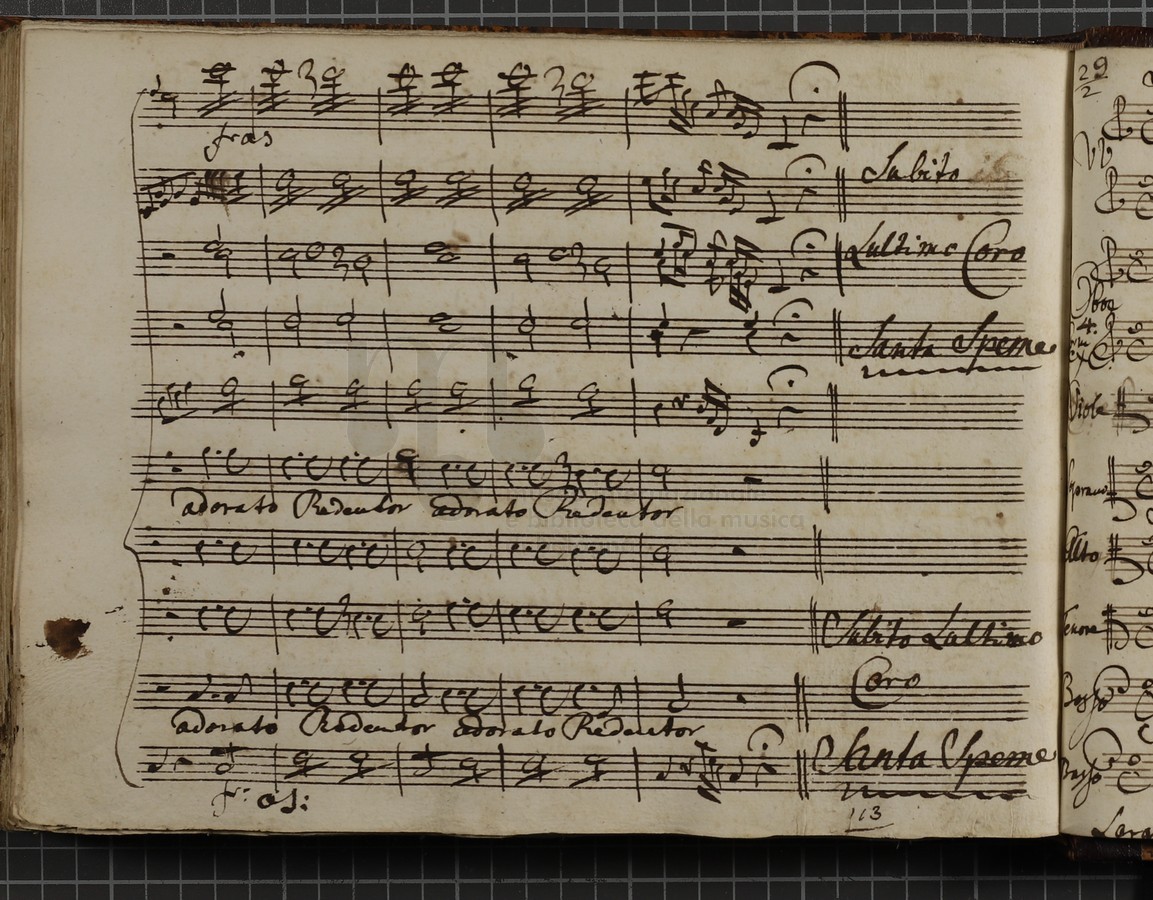 fr as
Subito
Lultimo Coro
Santa Speme
adorato Redentor adorato Redentor
Subito Lultimo
Coro
adorato Redentor adorato Redentor
Santa Speme
fr: as:
113
e biblioteca della musica
29
2
VV
Oboe
Viole
Soprano
Alto
Tenore
Basso
Basso